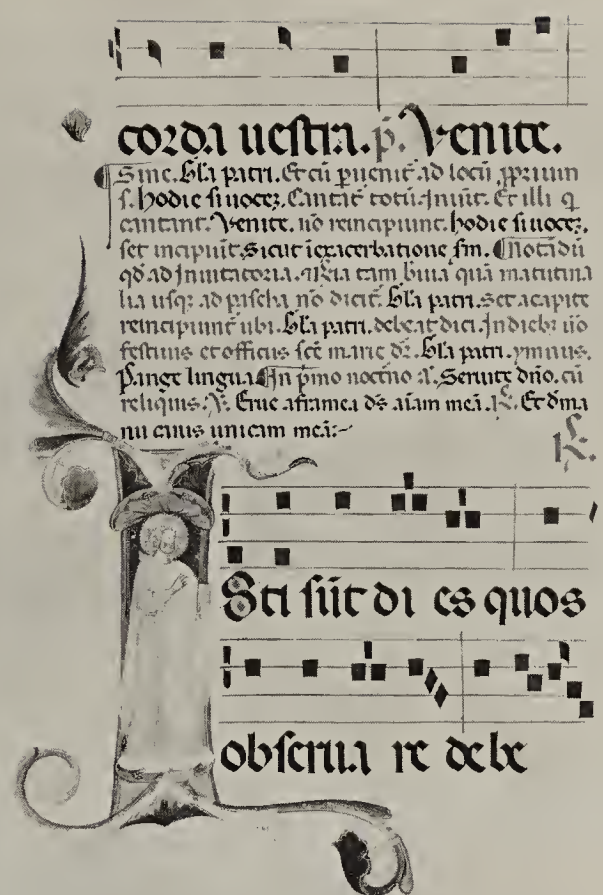 corda uestra. p̄. Venite.
Sine. Gl'a patri. Et cū puenit̄ ad locū ꝓprium
s. hodie si uocez. Cantat̄ totū Inuit̄. Et illi q̄
cantant. Venite. nō reincipiunt. hodie si uocez.
set incipiūt. Sicut ī exacerbatione sm̄. Notādū
qd̄ ad Inuitatoria. tam quā matutina
lia usq; ad pascha nō dicit̄. Gl'a patri. set a capite
reincipiunt̄ ubi. Gl'a patri. debeat dici. In dieb; uō
festiuis et officiis scē marie dr̄. Gl'a patri. ymnus.
Pange lingua. In p̄mo noct̄no a. Seruite dño. cū
reliquis. V. Erue a framea d̄s aīam meā. R. Et d̄ma
nu canis unicam meā:~
R.
Isti sūt di es quos
obserua re debe